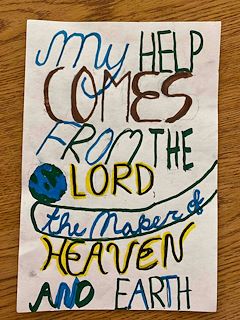 My HELP
COMES
FROM THE
LORD
the Maker of
HEAVEN
AND EARTH